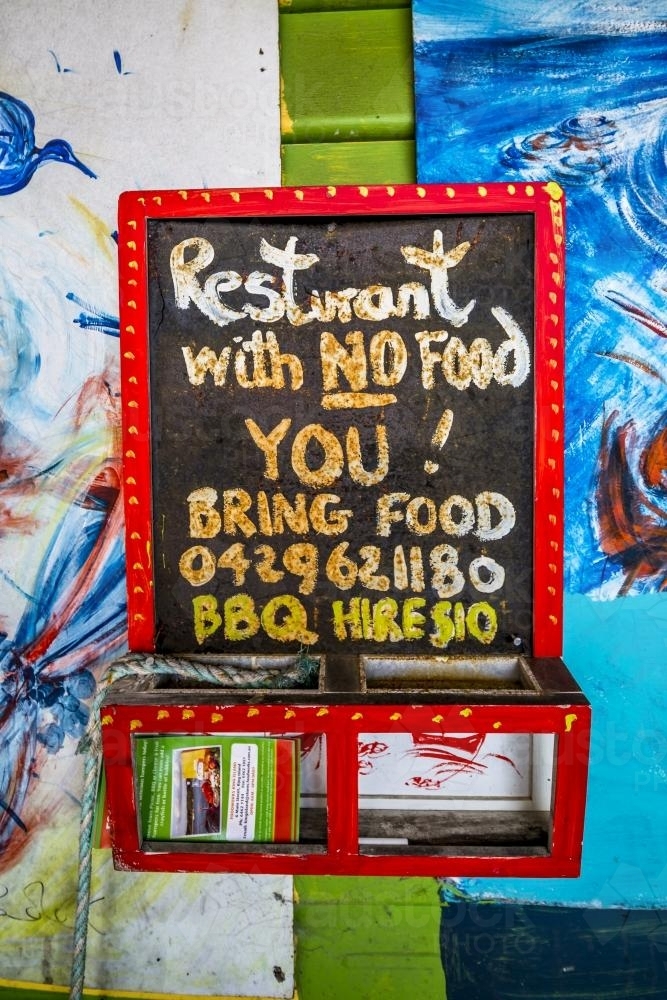 Resturant
with NO Food
YOU !
BRING FOOD
0429621180
BBQ HIRE $10